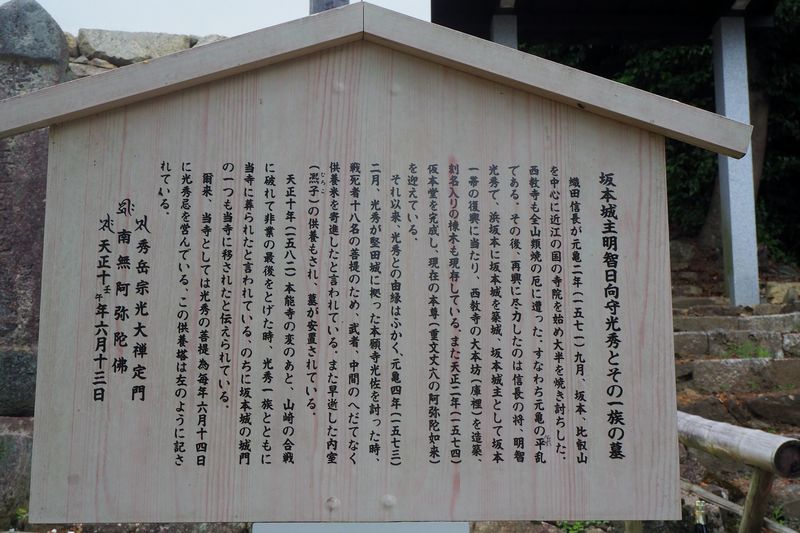 坂本城主明智日向守光秀とその一族の墓
織田信長が元亀二年(一五七一)九月、坂本、比叡山
を中心に近江の国の寺院を始め大半を焼き討ちした。
西教寺も全山類焼の厄に遭った。すなわち元亀の乎乱
である。その後、再興に尽力したのは信長の将、明智
光秀で、浜坂本に坂本城を築城、坂本城主として坂本
一帯の復興に当たり、西教寺の大本坊(庫裡)を造築、
刻名入りの棟木も現存している。また天正二年(一五七四)
仮本堂を完成し、現在の本尊(重文丈六の阿弥陀如来)
を迎えている。
それ以来、光秀との由縁はふかく、元亀四年(一五七三)
二月、光秀が堅田城に拠った本願寺光佐を討った時、
戦死者十八名の菩提のため、武者、中間のへだてなく
供養米を寄進したと言われている。また早逝した内室
(熙子)の供養もされ、墓が安置されている。
天正十年(一五八二)本能寺の変のあと、山崎の合戦
に破れて非業の最後をとげた時、光秀一族とともに
当寺に葬られたと言われている、のちに坂本城の城門
の一つも当寺に移されたと伝えられている。
爾来、当寺としては光秀の菩提為毎年六月十四日
に光秀忌を営んでいる。この供養塔は左のように記さ
れている。
秀岳宗光大禅定門
南無阿弥陀佛
天正十壬午年六月十三日